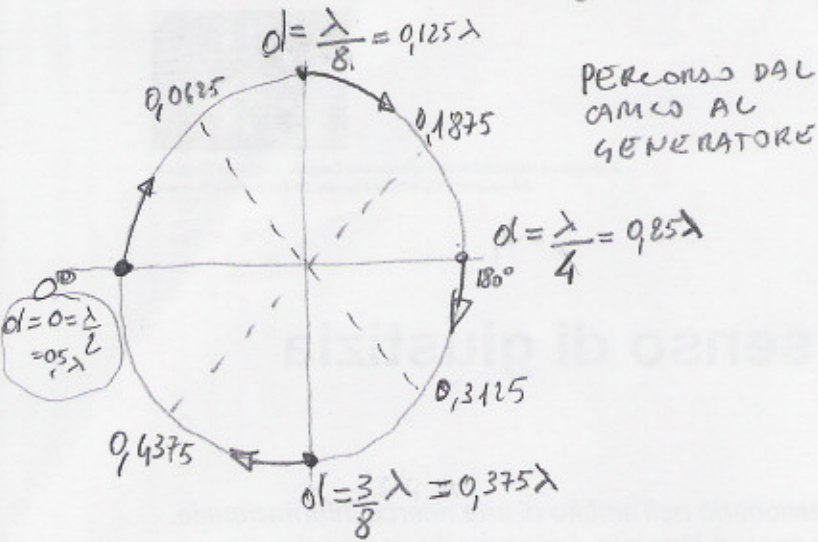 d = λ/8 = 0,125λ
0,0625
0,1875
PERCORSO DAL
CARICO AL
GENERATORE
d = λ/4 = 0,25λ
180°
0°
d = 0 = λ/2
= 0,5λ
0,3125
0,4375
d = 3/8 λ = 0,375λ
senso di giustizia